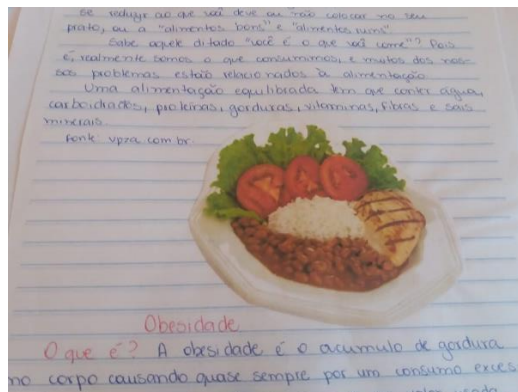 se reduzir ao que você deve ou não colocar no seu
prato, ou a "alimentos bons" e "alimentos ruins".
Sabe aquele ditado "você é o que você come"? Pois
é, realmente somos o que consumimos, e muitos dos nos-
sos problemas estão relacionados à alimentação
Uma alimentação equilibrada tem que conter água,
carboidratos, proteínas, gorduras, vitaminas, fibras e sais
minerais.
Fonte vpza.com.br.
Obesidade
O que é? A obesidade é o acumulo de gordura
no corpo causando quase sempre por um consumo exces